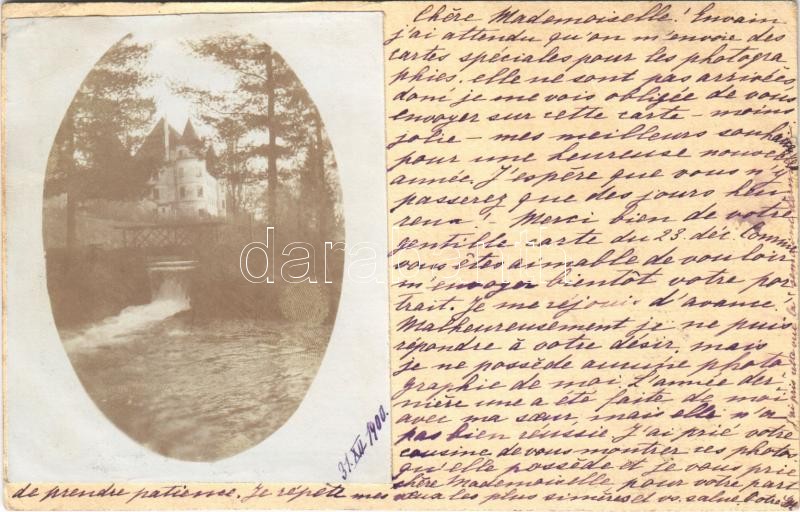 Chère Mademoiselle! Envain
j'ai attendu qu'on m'envoie des
cartes spéciales pour les photogra
phies, elle ne sont pas arrivées,
donc je me vois obligée de vous
envoyer sur cette carte - moins
jolie - mes meilleurs souhaits
pour une heureuse nouvelle
année. J'espère que vous n'y
passerez que des jours heu
reux. Merci bien de votre
gentille carte du 23. déc. Comme
vous êtes aimable de vouloir
m'envoyer bientôt votre por
trait. Je me réjouis d'avance.
Malheureusement je ne puis
répondre à votre désir, mais
je ne possède aucune photo
graphie de moi. L'année der
nière une a été faite de moi
avec ma sœur, mais elle n'a
pas bien réussie. J'ai prié votre
cousine de vous montrer ces photo
qu'elle possède et je vous prie
chère Mademoiselle pour votre part
de prendre patience. Je répète mes vœux les plus sincères et vs. salue. Votre
J'ai pris cette vue
31. XII. 1900.
darabanth